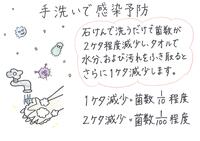 手洗いで感染予防
石けんで洗うだけで菌数が
2ケタ程度減少し、タオルで
水分、および汚れをふき取ると
さらに1ケタ減少します。
1ケタ減少=菌数1/10程度
2ケタ減少=菌数1/100程度